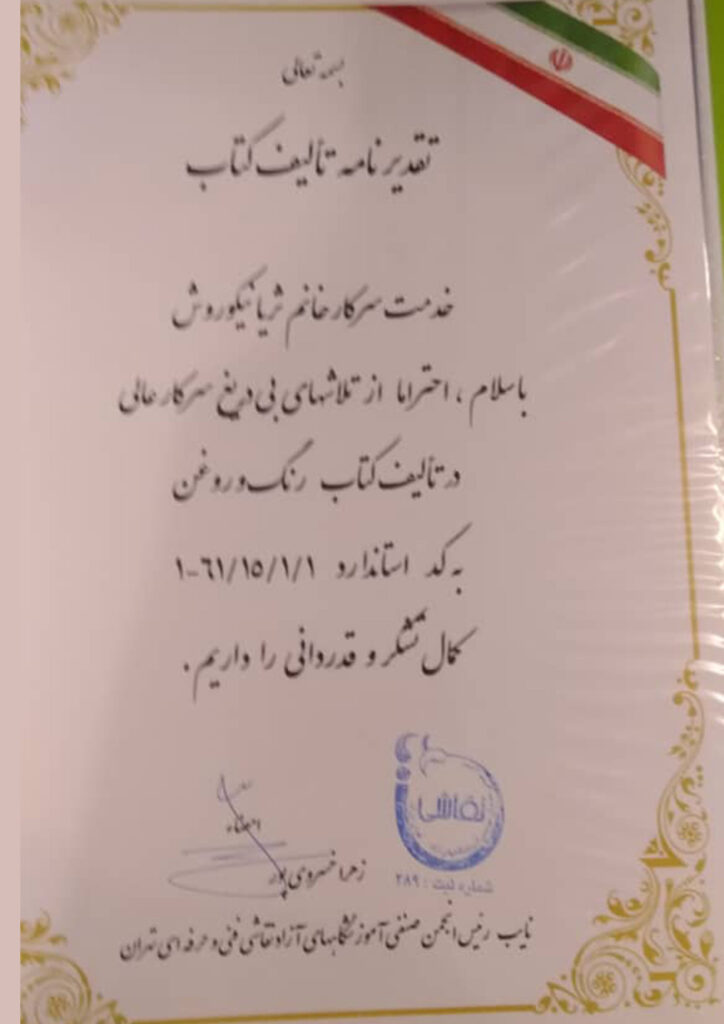 بسمه تعالی
تقدیر نامه تألیف کتاب
خدمت سرکار خانم ثریا نیکوروش
باسلام ، احتراما از تلاشهای بی دریغ سرکار عالی
در تألیف کتاب رنگ و روغن
به کد استاندارد ۱-۶۱/۱۵/۱/۱
کمال تشکر و قدردانی را داریم .
نقاشی
شماره ثبت : ۲۸۹
امضاء
زهرا خسروی پور
نایب رئیس انجمن صنفی آموزشگاههای آزاد نقاشی فنی و حرفه ای تهران